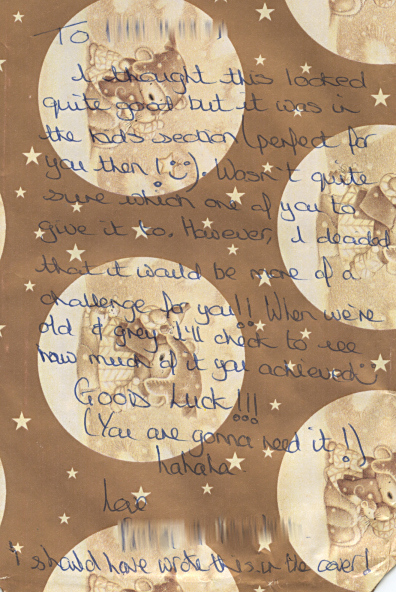 To
I thought this looked
quite good but it was in
the kids section (perfect for
you then! :)). Wasn't quite
sure which one of you to
give it to. However, I decided
that it would be more of a
challenge for you!! When we're
old & grey I'll check to see
how much of it you achieved :)
Good Luck!!!
(You are gonna need it!!)
hahaha
Love
I should have wrote this in the cover!